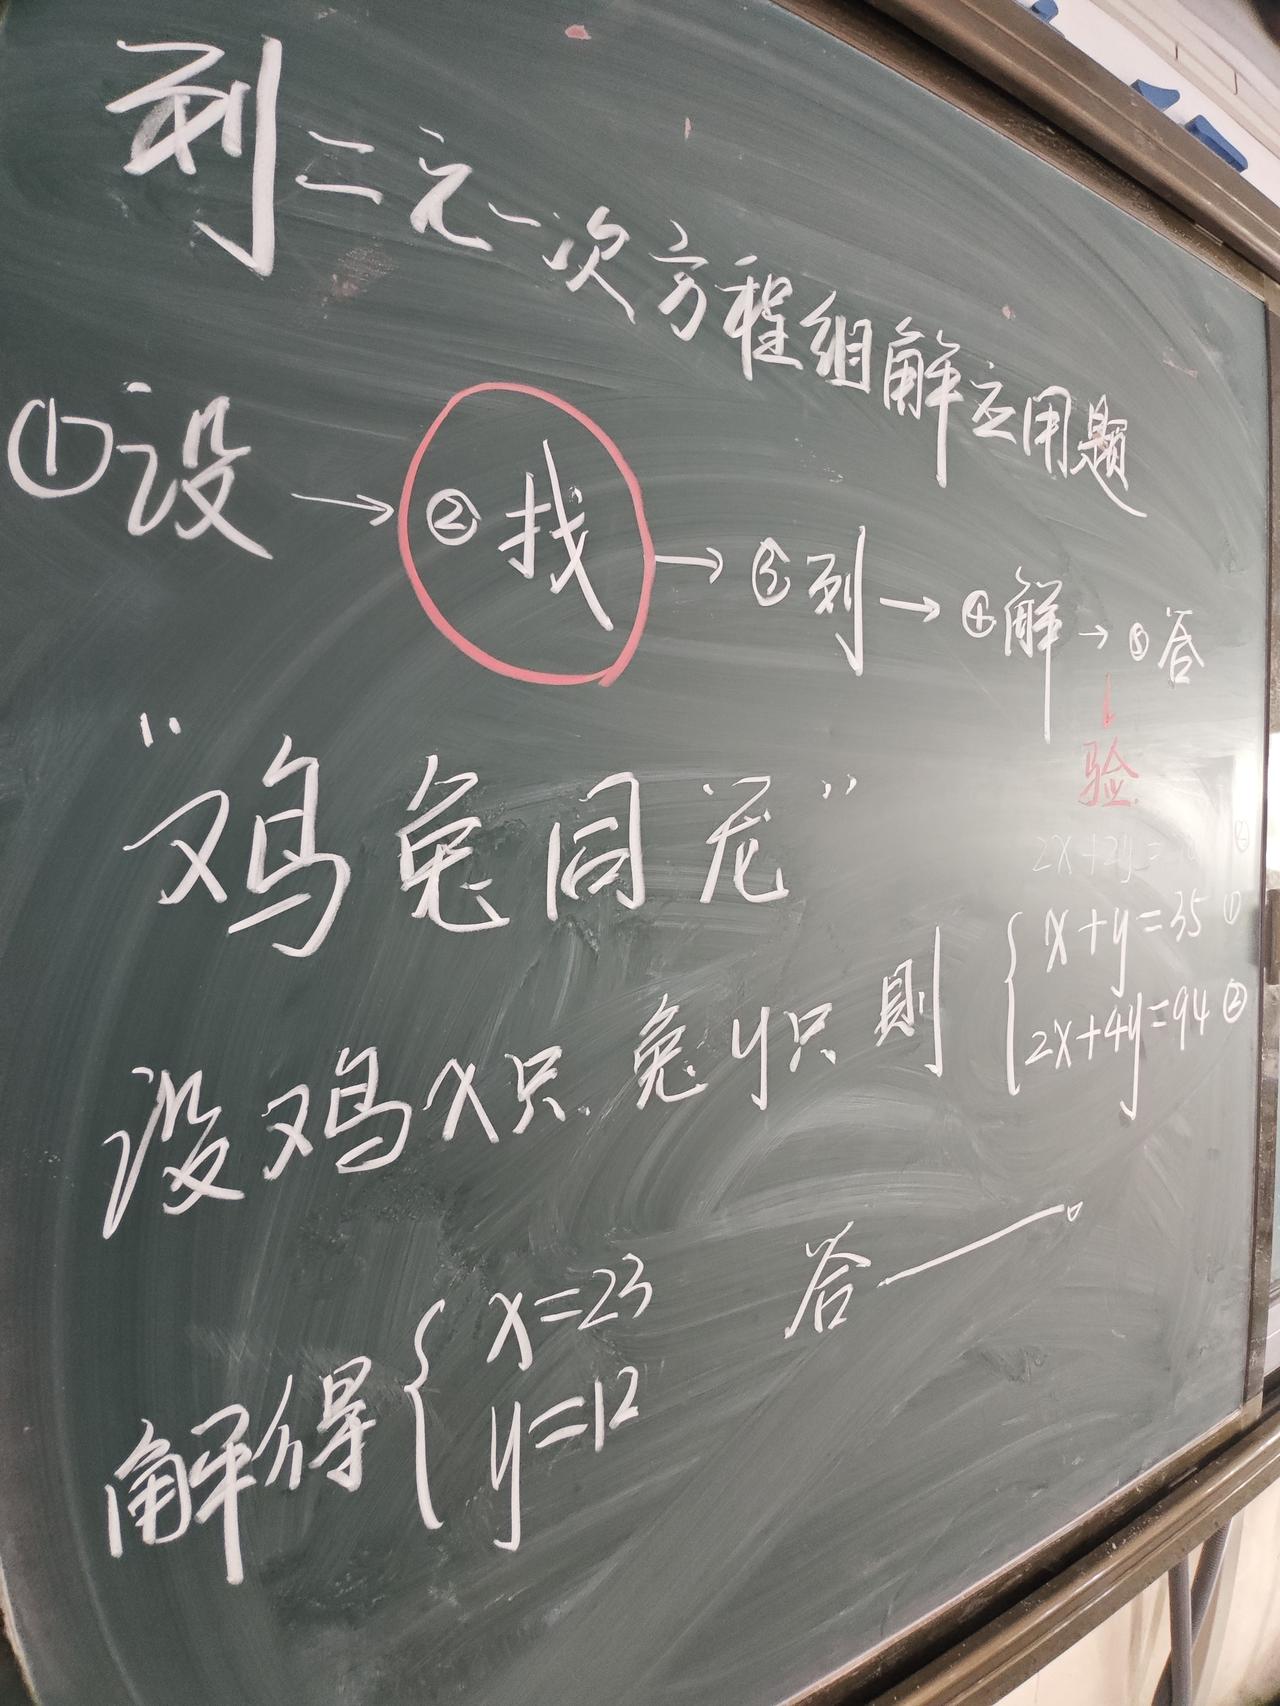 列二元一次方程组解应用题
①设→②找→③列→④解→⑤答
↓
验
“鸡兔同笼”
2x+2y=
设鸡x只.兔y只 則 { x+y=35 ①
2x+4y=94 ②
解得 { x=23
y=12
答——。